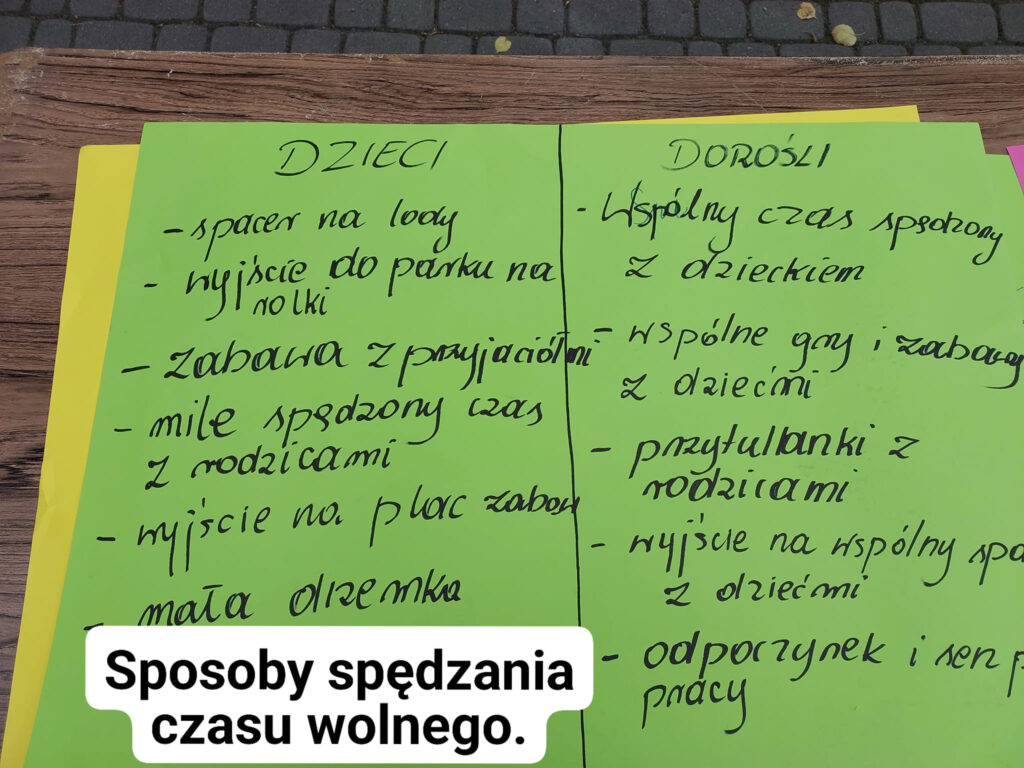 DZIECI
- spacer na lody
- wyjście do parku na
rolki
- zabawa z przyjaciółmi
- mile spędzony czas
z rodzicami
- wyjście na. plac zabaw
- mała drzemka
DOROŚLI
- Wspólny czas spędzony
z dzieckiem
- wspólne gry i zabawy
z dziećmi
- przytullanki z
rodzicami
- wyjście na wspólny
z dziećmi
- odpoczynek i sen
pracy
Sposoby spędzania
czasu wolnego.